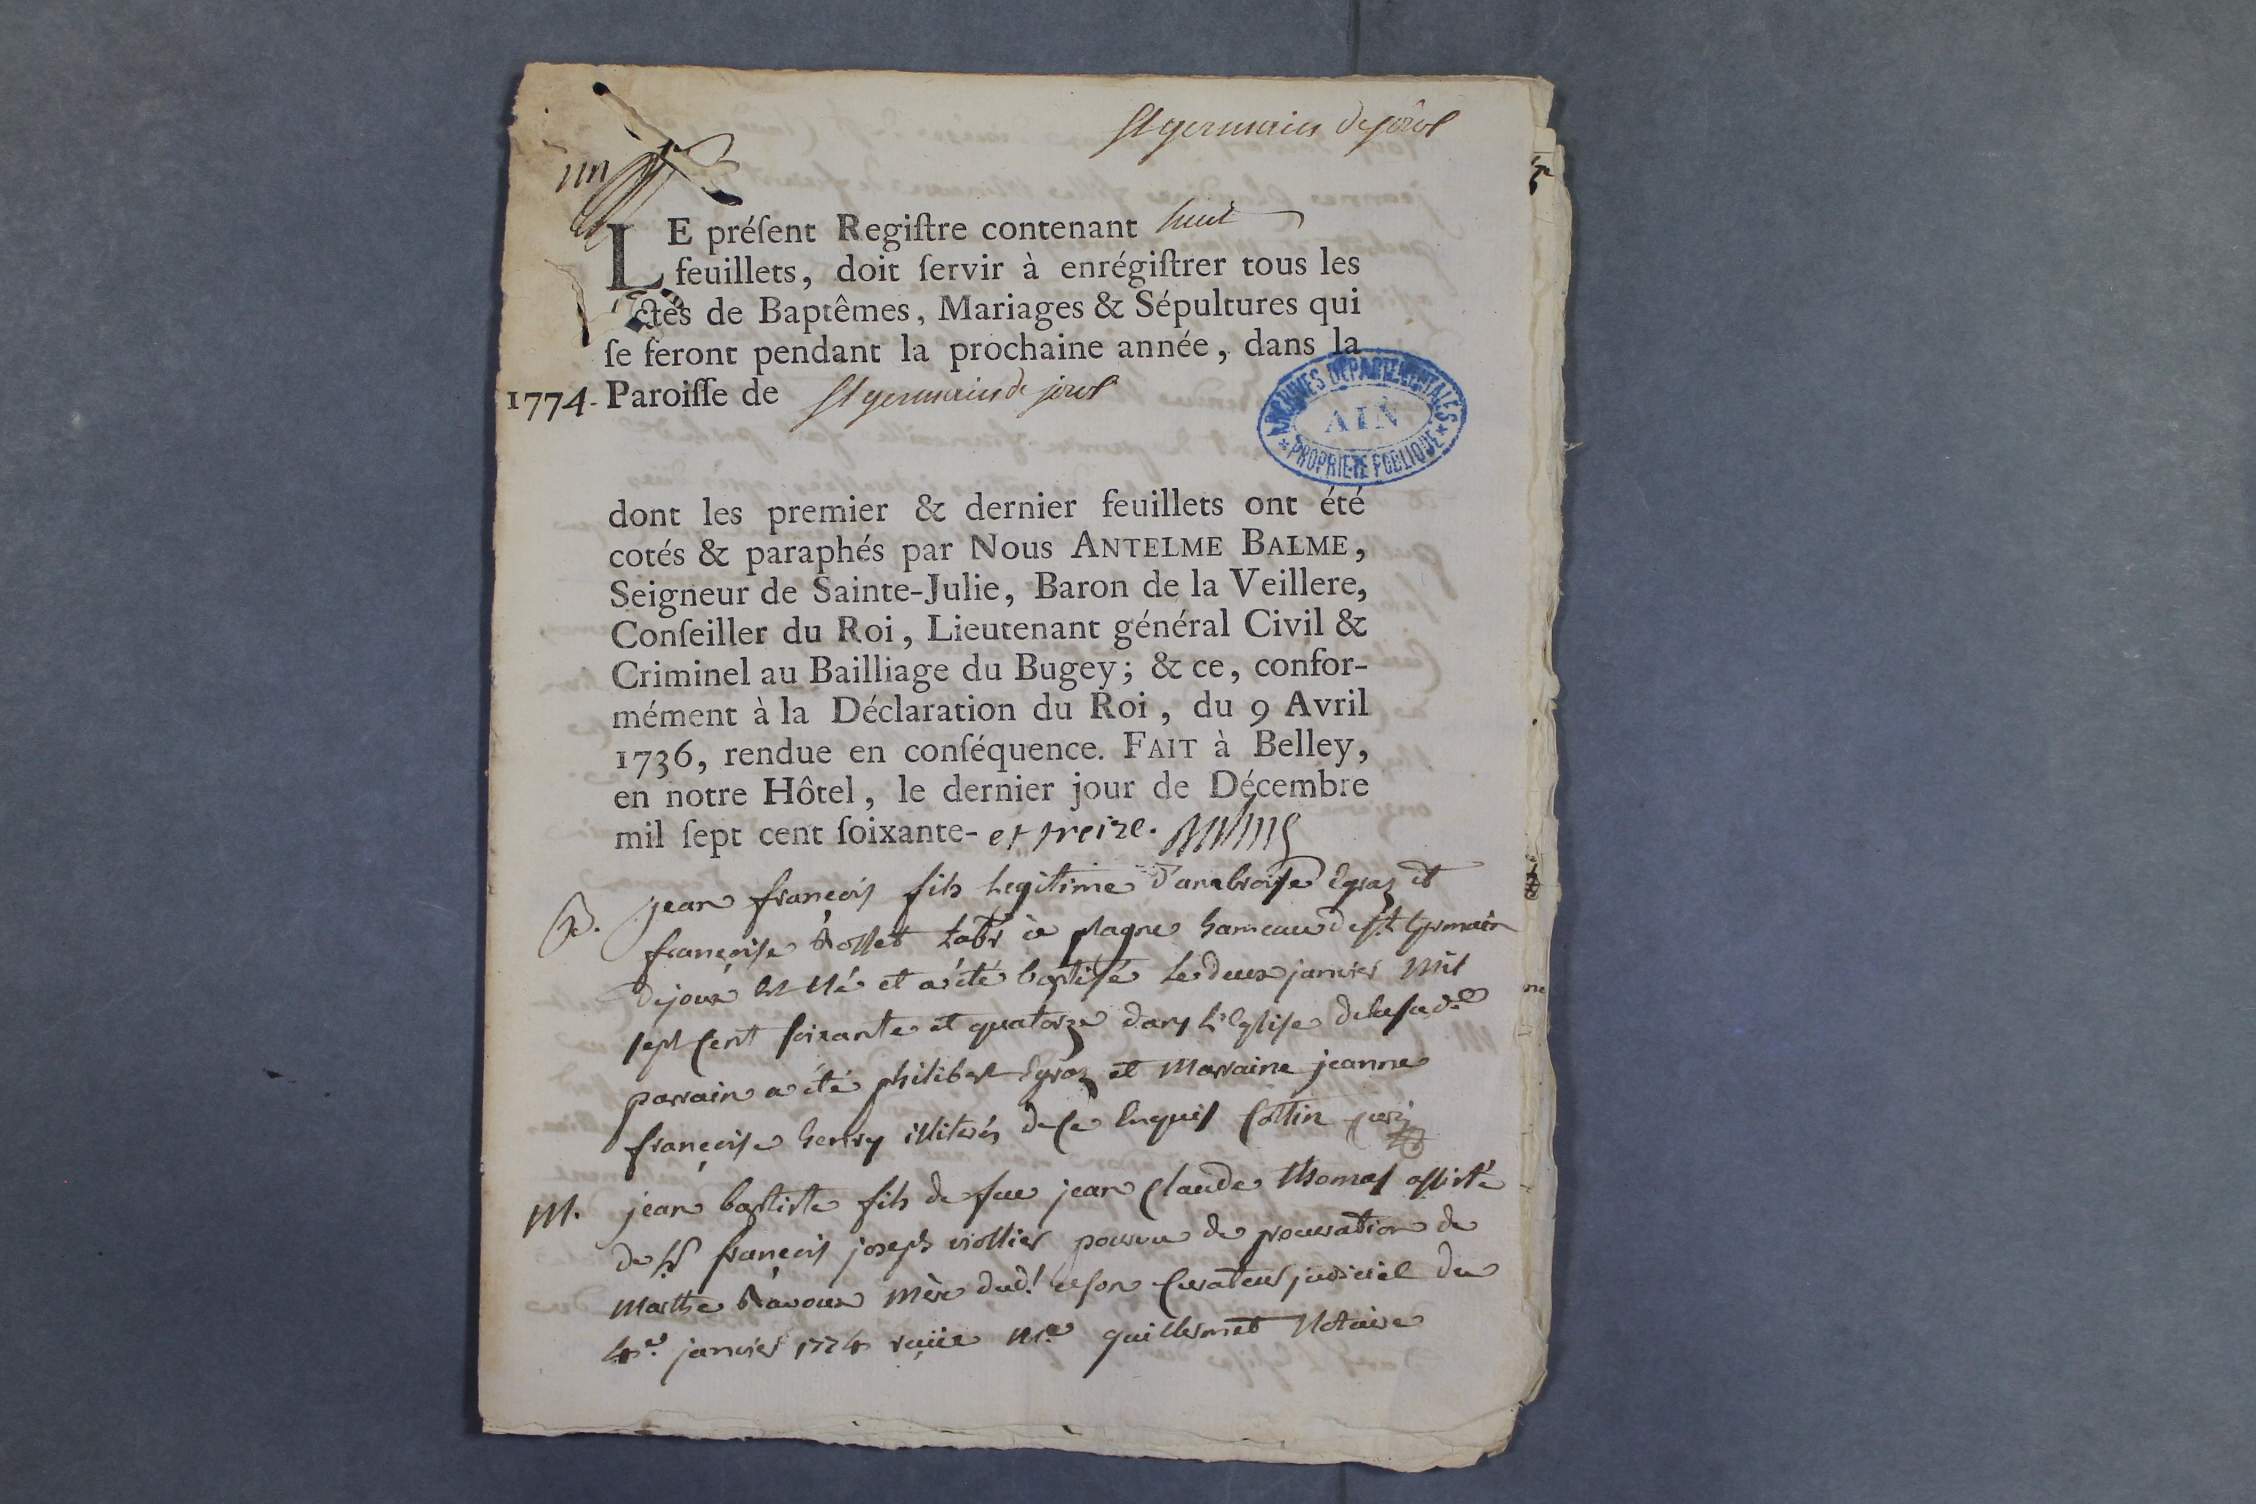 St germain de joux
LE préſent Regiſtre contenant huit
feuillets, doit ſervir à enrégiſtrer tous les
Actes de Baptêmes, Mariages & Sépultures qui
ſe feront pendant la prochaine année, dans la
1774. Paroiſſe de St germain de joux
ARCHIVES DÉPARTEMENTALES
AIN
PROPRIÉTÉ PUBLIQUE
dont les premier & dernier feuillets ont été
cotés & paraphés par Nous ANTELME BALME,
Seigneur de Sainte-Julie, Baron de la Veillere,
Conſeiller du Roi, Lieutenant général Civil &
Criminel au Bailliage du Bugey; & ce, confor-
mément à la Déclaration du Roi, du 9 Avril
1736, rendue en conſéquence. FAIT à Belley,
en notre Hôtel, le dernier jour de Décembre
mil ſept cent ſoixante- et treize.
B. jean françois fils legitime d'ambroise Egraz et
françoise Rosset labr à plagne hameau de St germain
de joux est né et a été baptisé le deux janvier mil
sept cent soixante et quatorze dans l'Eglise
parrain a été philibert Egraz et marraine jeanne
françoise henry illiterés de ce Enquis Cottin curé
M. jean baptiste fils de feu jean claude thomas assisté
de françois joseph viollier pourvu de procuration de
Marthe mère dud. son Curateur judiciel du
4e. janvier 1774 Me. guillermet Notaire